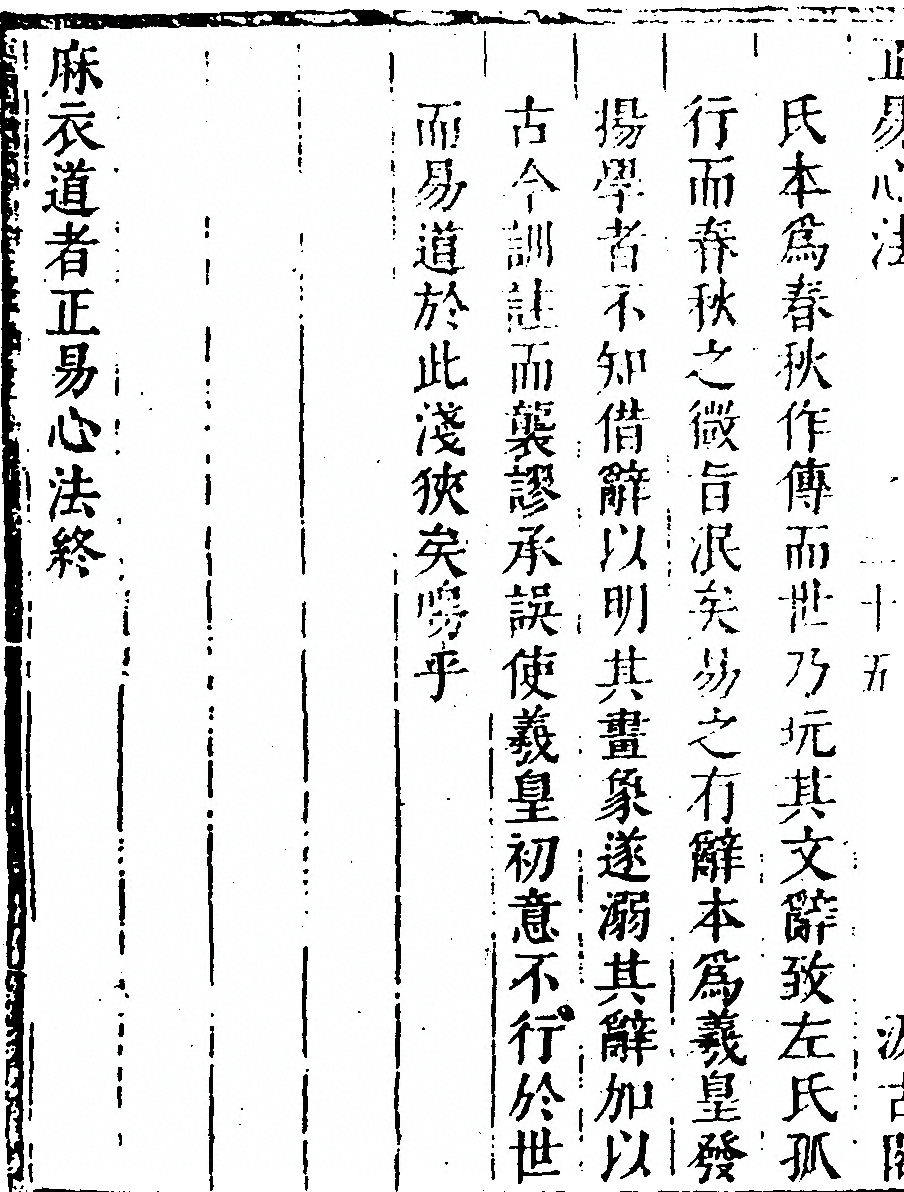 正易心法 二十五 汲古閣
氏本爲春秋作傳而世乃玩其文辭致左氏孤
行而春秋之微旨泯矣易之有辭本爲羲皇發
揚學者不知借辭以明其畫象遂溺其辭加以
古今訓註而襲謬承誤使羲皇初意不行於世
而易道於此淺狹矣嗚乎
麻衣道者正易心法終